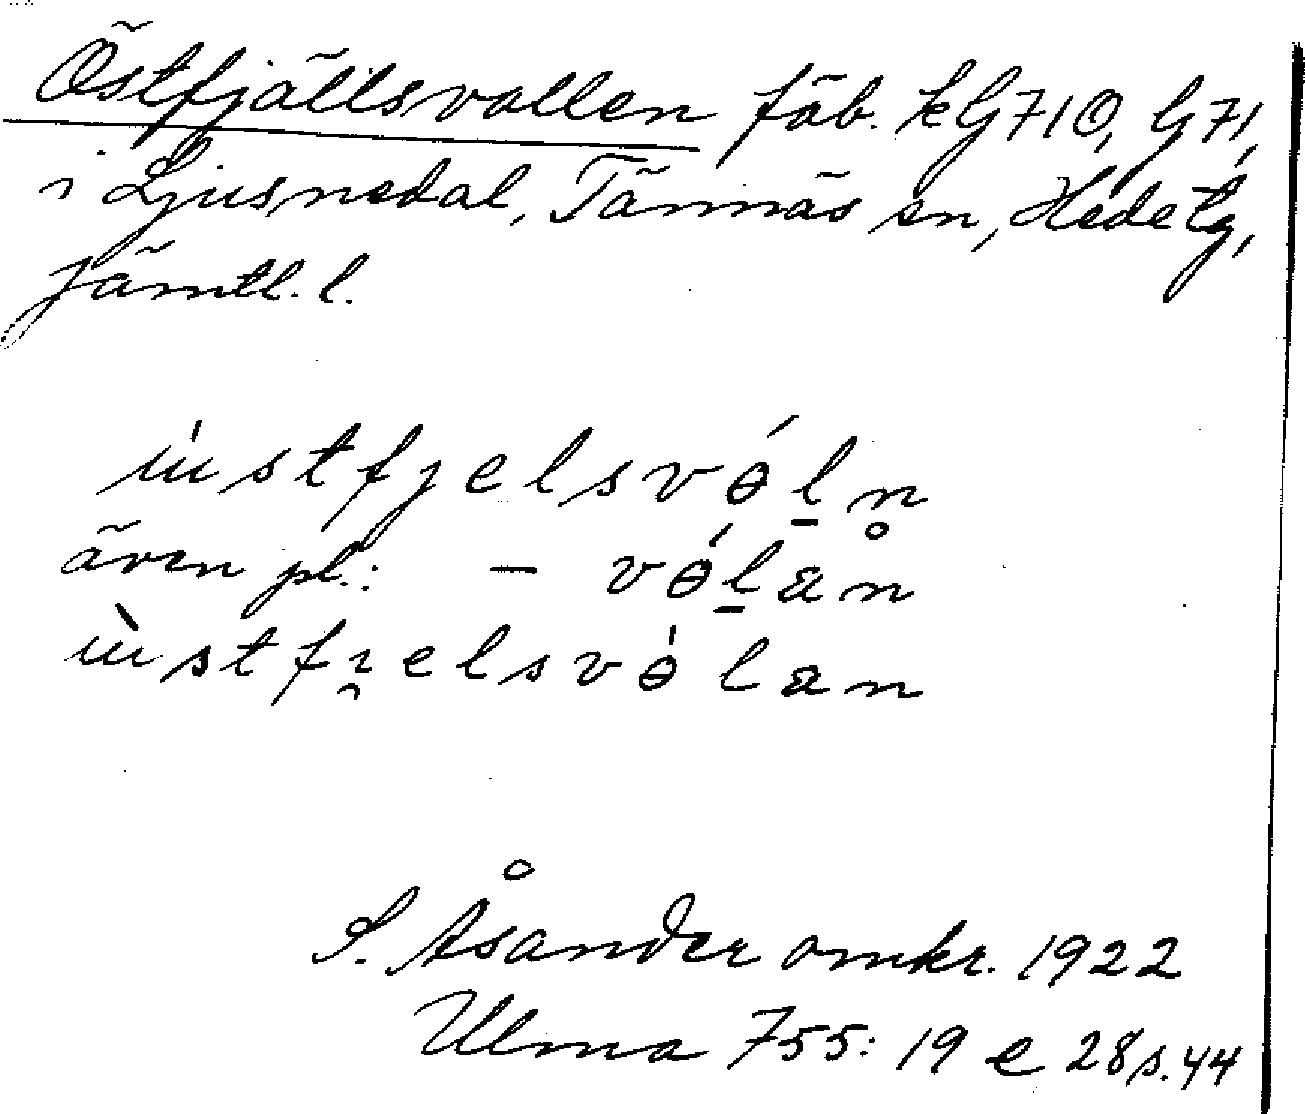 Östfjällsvallen fäb. kG710, G71,
i Ljusnedal, Tännäs sn, Hede tg,
Jämtl. l.
ùstfjelsvɵ́l̠n̥
även pl.: - vɵ́l̠an
ùstfi̯elsvɵ̀lan
S. Åsander omkr. 1922
Ulma 755: 19 e 28 s. 44